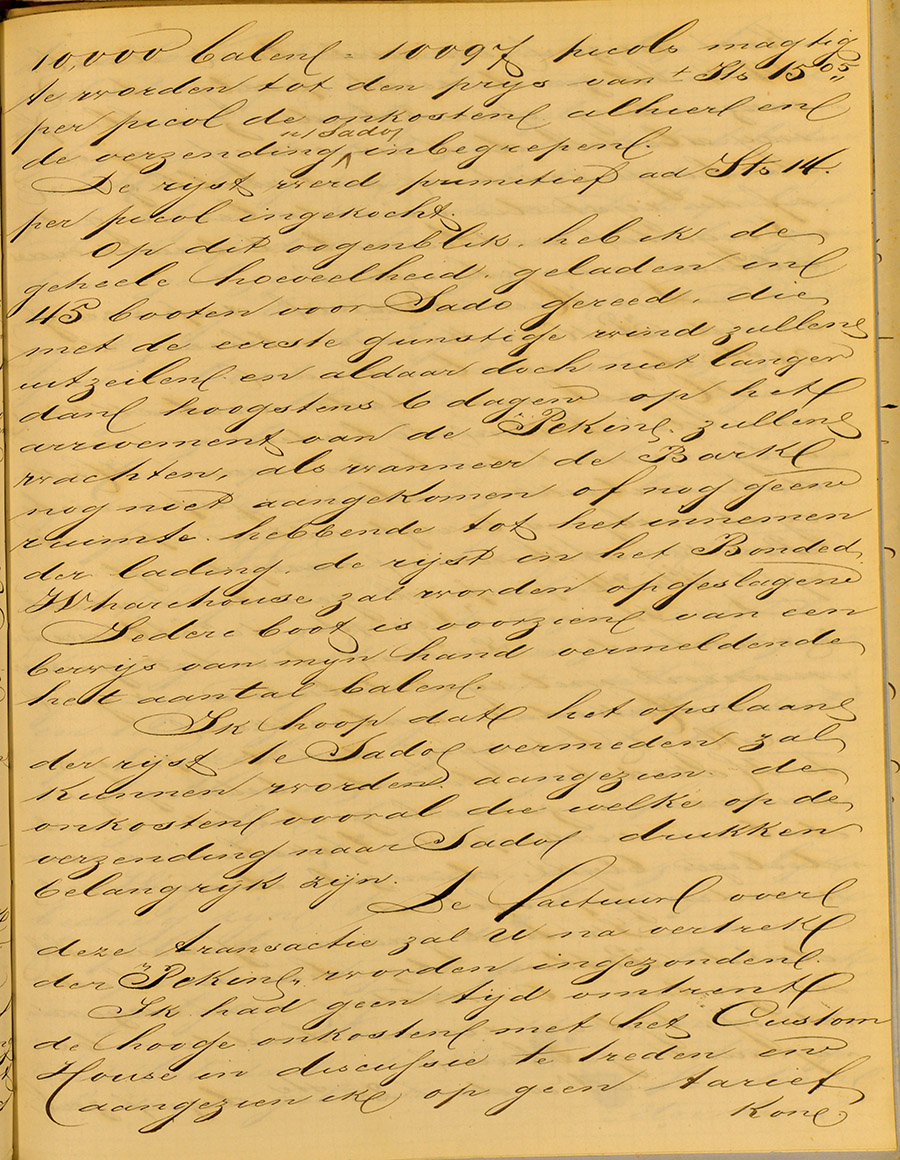 10,000 balen = 10097 picols magtig
te worden tot den prijs van ± Sts 15.05
per picol de onkosten alhier en
n/ Sado
de verzending inbegrepen.
De rijst werd primitief ad Sts 14.
per picol ingekocht.
Op dit oogenblik heb ik de
geheele hoeveelheid geladen in
45 booten voor Sado gereed, die
met de eerste gunstige wind zullen
uitzeilen en aldaar doch niet langer
dan hoogstens 6 dagen op het
arrivement van de "Peking" zullen
wachten, als wanneer de Bark
nog niet aangekomen of nog geen
ruimte hebbende tot het innemen
der lading de rijst in het Bonded
Wharehouse zal worden opgeslagen
Iedere boot is voorzien van een
bewijs van mijn hand vermeldende
het aantal balen.
Ik hoop dat het opslaan
der rijst te Sado vermeden zal
kunnen worden aangezien de
onkosten vooral die welke op de
verzending naar Sado drukken
belangrijk zijn.
De factuur over
deze transactie zal U na vertrek
der "Peking" worden ingezonden.
Ik had geen tijd omtrent
de hooge onkosten met het Custom
House in discussie te treden en
aangezien ik op geen tarief
kon